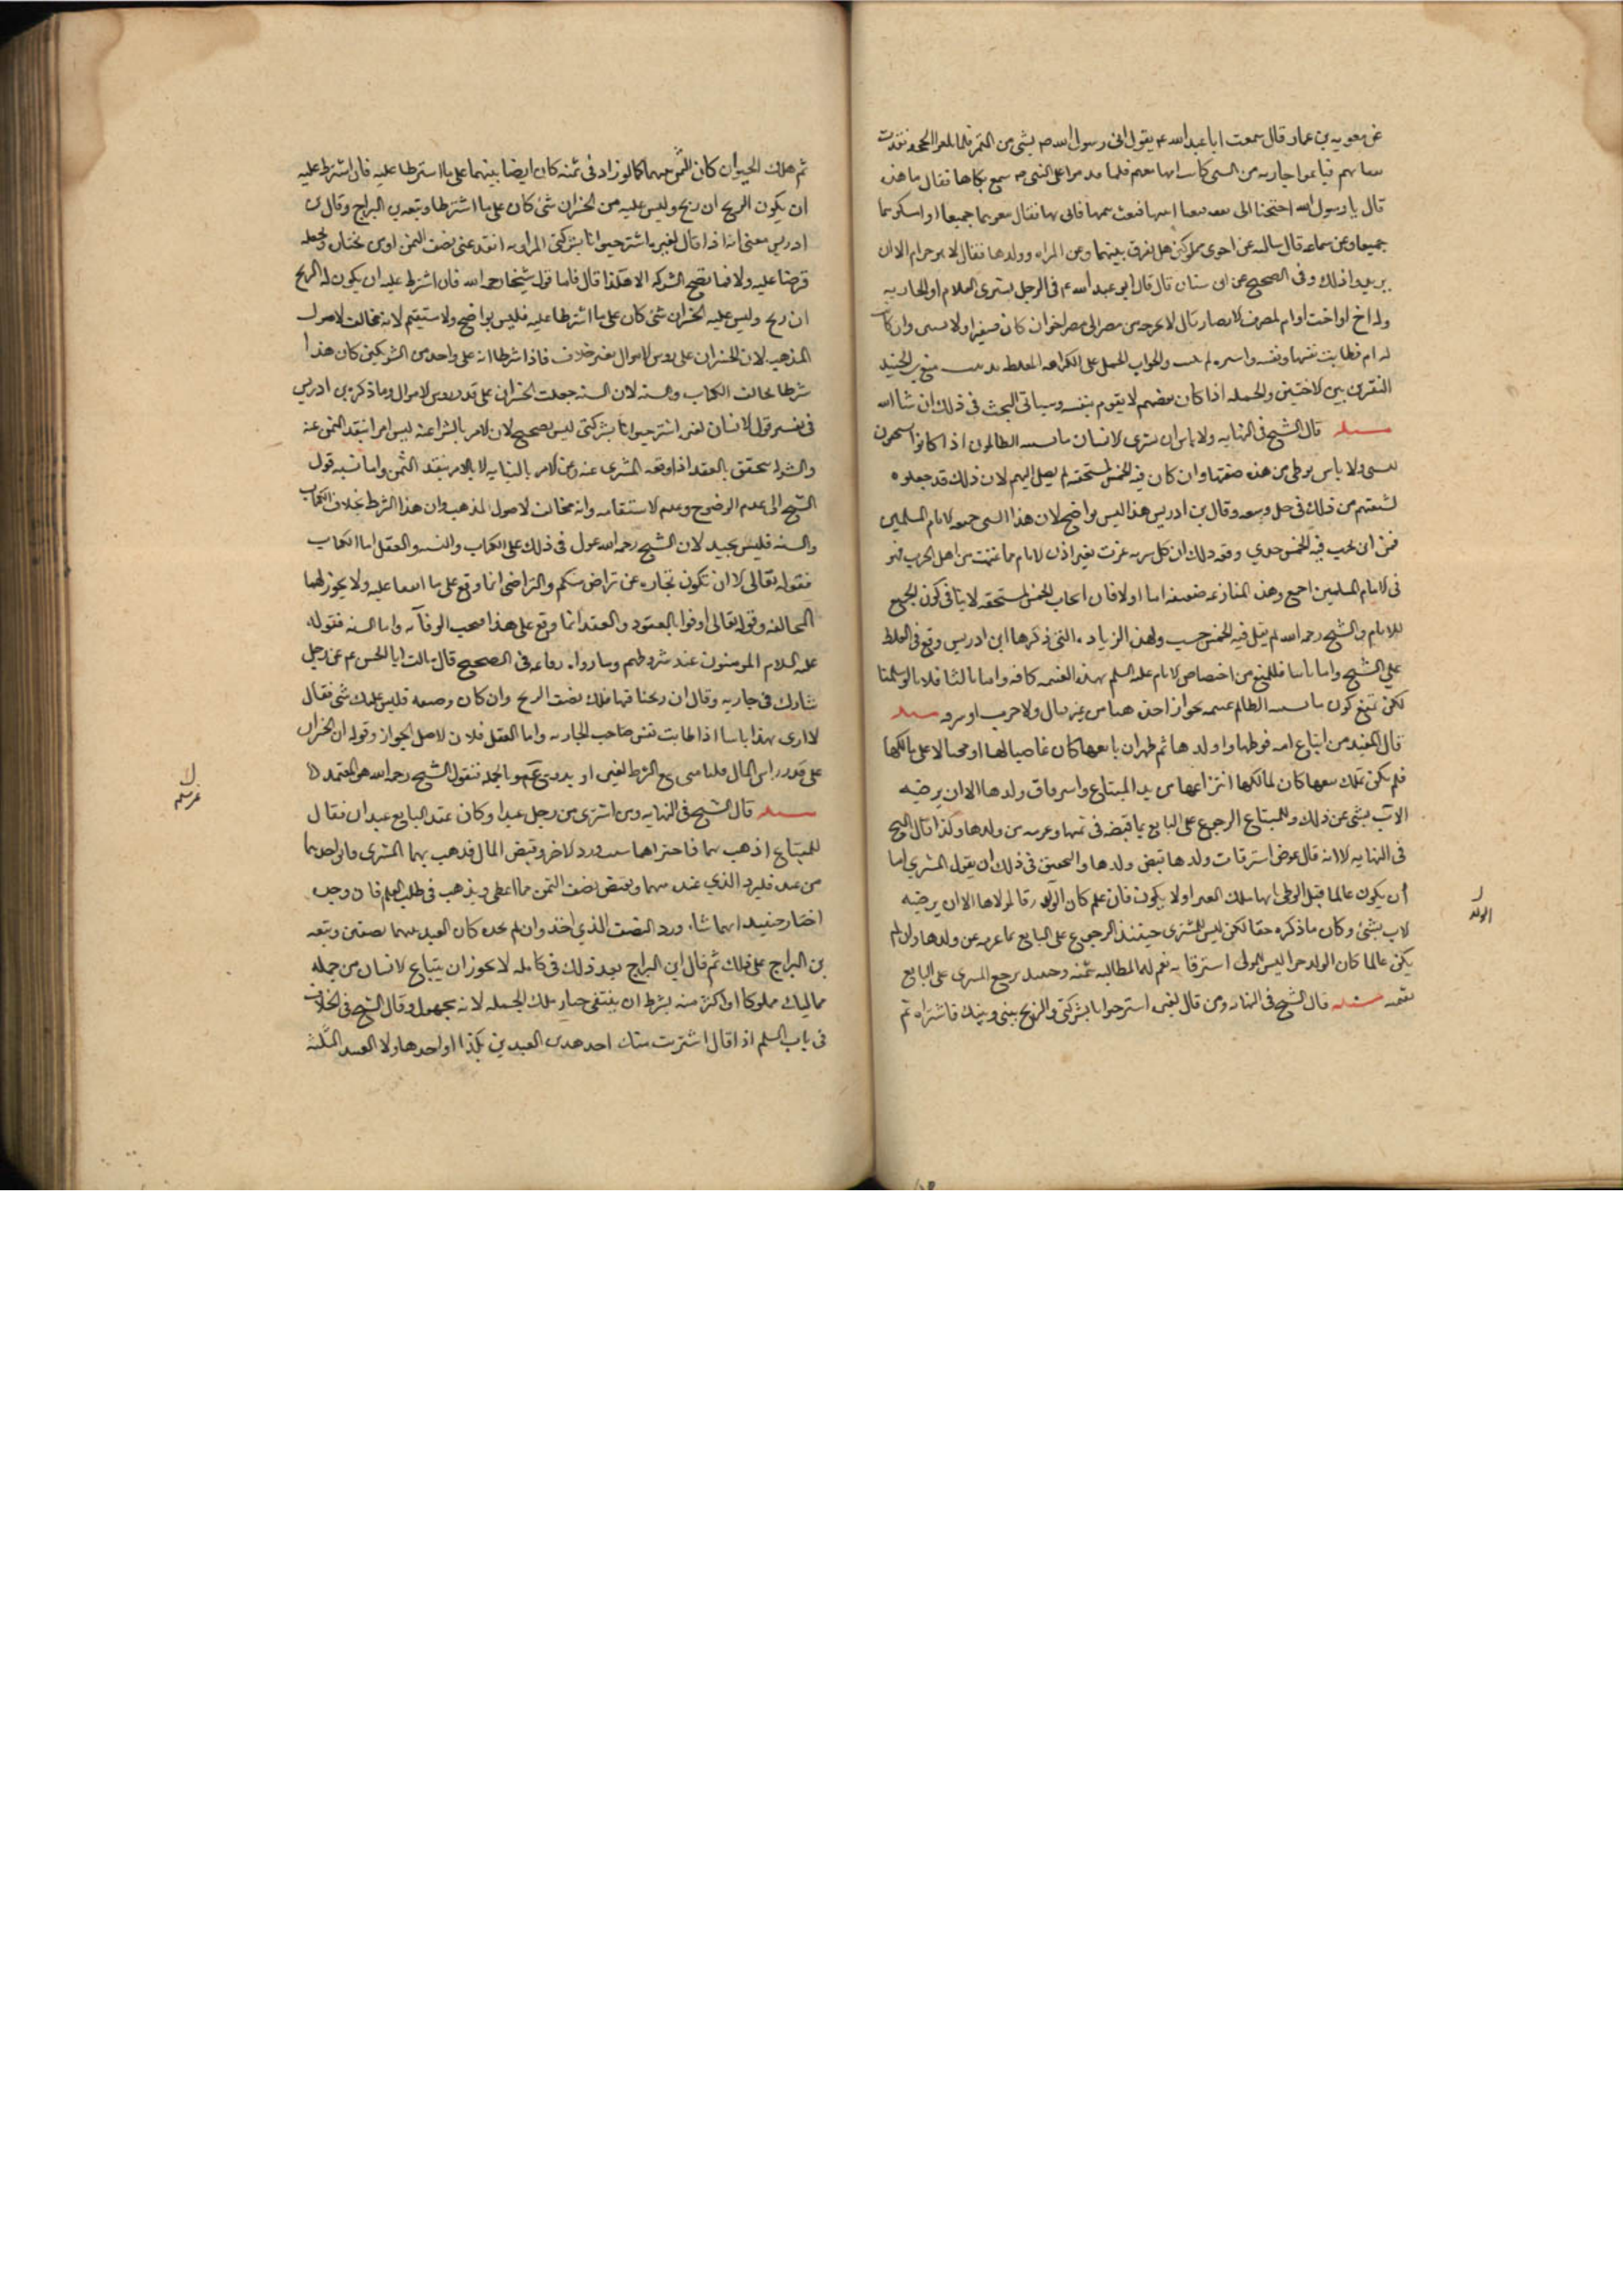 عن معويه بن عمار قال سمعت ابا عبد الله ع يقول اتى رسول الله ص بشى من اليمن فلما بلغوا الجحفه نفدت
نفقاتهم فباعوا جاريه من السبى كانت امها معهم فلما قدموا على النبى ص سمع بكاها فقال ما هذه
قال يا رسول الله احتجنا الى نفقه فبعنا ابنتها فبعث بثمنها فاتى بها فقال بيعوهما جميعا او امسكوهما
جميعا وعن سماعه قال سالته عن اخوين مملوكين هل يفرق بينهما وعن المراه وولدها فقال لا هو حرام الا ان
يريدوا ذلك وفى الصحيح عن ابن سنان قال قال ابو عبد الله ع فى الرجل يشترى الغلام او الجاريه
وله اخ او اخت او ام بمصر من الامصار قال لا يخرجه من مصر الى مصر اخر ان كان صغيرا ولا يشتره وان كان
له ام فطابت نفسها ونفسه والجواب الحمل على الكراهه منع بن الجنيد
التفريق بين الاختين والجمله اذا كان بعضهم لا يقوم بنفسه وسياتى البحث فى ذلك ان شا الله
مسئله قال الشيخ فى النهايه ولا باس ان يشترى الانسان ما يسبيه الظالمون اذا كانوا مستحقين
للسبى ولا باس بوطى من هذه صفتها وان كان فيه الخمس لمستحقه لم يصل اليهم لان ذلك قد جعلوه
لشيعتهم من ذلك فى حل وسعه وقال بن ادريس هذا ليس بواضح لان هذا السبى جميعه لامام المسلمين
فمن اين يجب فيه الخمس حسب وفقه ذلك ان كل سريه غزت بغير اذن الامام فما غنمت من اهل الحرب فهو
فى لامام المسلمين اجمع وهذه المنازعه ضعيفه اما اولا فلان ايجاب الخمس لمستحقه لا ينافى كون الجميع
للامام والشيخ رحمه الله لم يقل فيه الخمس حسب ولهذه الزياده التى ذكرها ابن ادريس وقع فى الغلط
على الشيخ واما ثانيا فللمنع من اختصاص الامام عليه السلم بهذه الغنيمه كافه واما ثالثا فلانا لو سلمنا
لكن نمنع كون ما يسبيه الظالم غنيمه لجواز اخذه من غير قتال ولا حرب او سرقه مسئله
قال المفيد من ابتاع امه فوطيها واولدها ثم ظهر ان بايعها كان غاصبا لها او محتالا على مالكها
فلم يكن يملك بيعها كان لمالكها انتزاعها من يد المبتاع واسترقاق ولدها الا ان يرضيه
الاب بشى عن ذلك وللمبتاع الرجوع على البايع بما قبضه فى ثمنها وغرمه عن ولدها وكذا قال الشيخ
فى النهايه الا انه قال عوض استرقاق ولدها قبض ولدها والتحقيق فى ذلك ان يقول المشترى اما
ان يكون عالما قبل الوطى بها بملك الغير او لا يكون فان علم كان الولد رقا لمولاها الا ان يرضيه
الاب بشى وكان ما ذكره حقا لكن ليس للمشترى حينئذ الرجوع على البايع بما غرمه عن ولدها وان لم
يكن عالما كان الولد حرا ليس للمولى استرقاقه نعم له المطالبه بثمنه وحينئذ يرجع المشترى على البايع
بقيمته مسئله قال الشيخ فى النهايه ومن قال لغيره اشتر حيوانا بشركتى والربح بينى وبينك فاشتراه ثم
الولد
ثم هلك الحيوان كان الثمن بينهما كما لو زاد فى ثمنه كان ايضا بينهما على ما اشترطا عليه فان اشترط عليه
ان يكون الربح ان ربح وليس عليه من الخسران شى كان على ما اشترطا وتبعه بن البراج وقال بن
ادريس معنى انه اذا قال لغيره اشتر حيوانا بشركتى المراد به انقد عنى نصف الثمن او من يختار وتجعله
قرضا عليه والا فما تصح الشركه الا هكذا قال فاما قول شيخنا رحمه الله فان اشترط عليه ان يكون له الربح
ان ربح وليس عليه الخسران شى كان على ما اشترطا عليه فليس بواضح ولا مستقيم لانه مخالف لاصول
المذهب لان الخسران على روس الاموال بغير خلاف فاذا شرطا انه على واحد من الشريكين كان هذا
شرطا يخالف الكتاب والسنه لان السنه جعلت الخسران على قدر روس الاموال وما ذكره بن ادريس
فى تفسير قول الانسان لغيره اشتر حيوانا بشركتى ليس بصحيح لان الامر بالشرا عنه ليس امرا بنقد الثمن عنه
والشرا يتحقق بالعقد اذا اوقعه المشترى عنه وعن الامر بالنيابه لا بالامر بنقد الثمن واما نسبه قول
الشيخ الى عدم الوضوح وعدم الاستقامه وانه مخالف لاصول المذهب وان هذا الشرط بخلاف الكتاب
والسنه فليس بجيد لان الشيخ رحمه الله عول فى ذلك على الكتاب والسنه والعقل اما الكتاب
فقوله تعالى الا ان تكون تجاره عن تراض منكم والتراضى انما وقع على ما اتفقا عليه ولا يجوز لهما
المخالفه وقوله تعالى اوفوا بالعقود والعقد انما وقع على هذا فيجب الوفا به واما السنه فقوله
عليه السلام المومنون عند شروطهم وما رواه رفاعه فى الصحيح قال سالت ابا الحسن ع عن رجل
شارك فى جاريه وقال ان ربحنا فيها فلك نصف الربح وان كان وضيعه فليس عليك شى فقال
لا ارى بهذا باسا اذا طابت نفس صاحب الجاريه واما العقل فلان الاصل الجواز وقوله ان الخسران
على قدر راس المال قلنا متى مع الشرط لغيره او بدونه وبالجمله فقول الشيخ رحمه الله هو المعتمد
مسئله قال الشيخ فى النهايه ومن اشترى من رجل عبدا وكان عند البايع عبدان فقال
للمبتاع اذهب بهما فاختر ايهما شيت ورد الاخر وقبض المال فذهب بهما المشترى فابق احدهما
من عنده فليرد الذى عنده منهما ويقبض نصف الثمن مما اعطى ويذهب فى طلب الغلام فان وجده
اختار حينئذ ايهما شا ورد النصف الذى اخذ وان لم يجده كان العبد بينهما نصفين وتبعه
بن البراج على ذلك ثم قال ابن البراج بعد ذلك فى كامله لا يجوز ان يبتاع الانسان من جمله
مماليك مملوكا او اكثر منه بشرط ان ينتقى خيار تلك الجمله لانه مجهول وقال الشيخ فى الخلاف
فى باب السلم اذا قال اشتريت منك احد هذين العبدين بكذا او احد هاولا العبيد الثلثه